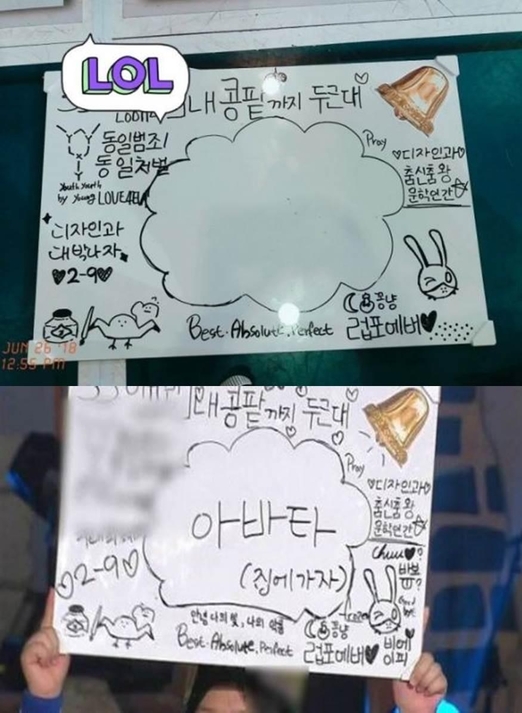 LOL
내 콩팥까지 두근대
Pray
동일범죄
동일처벌
♡디자인과♡
춤신춤왕
문학인간
Youth Youth
by Young
디자인과
대박나자
♥2-9♥
Best. Absolute. Perfect
꽁냥
럽포에버♥
JUN 26 '18
12:55 PM
내 콩팥까지 두근대
Pray
♡디자인과♡
춤신춤왕
문학인간
아바타
(집에가자)
Chuu♥
바보
♡2-9♡
안녕 나의 빛, 나의 악몽
Best. Absolute. Perfect
꽁냥
럽포에버♥
비에
이피